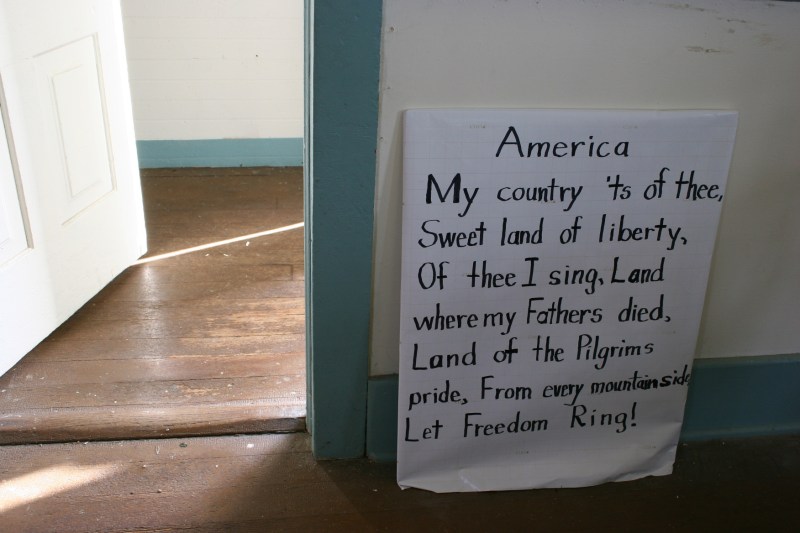 America
My country 'ts of thee,
Sweet land of liberty,
Of thee I sing, Land
where my Fathers died,
Land of the Pilgrims
pride, From every mountainside
Let Freedom Ring!